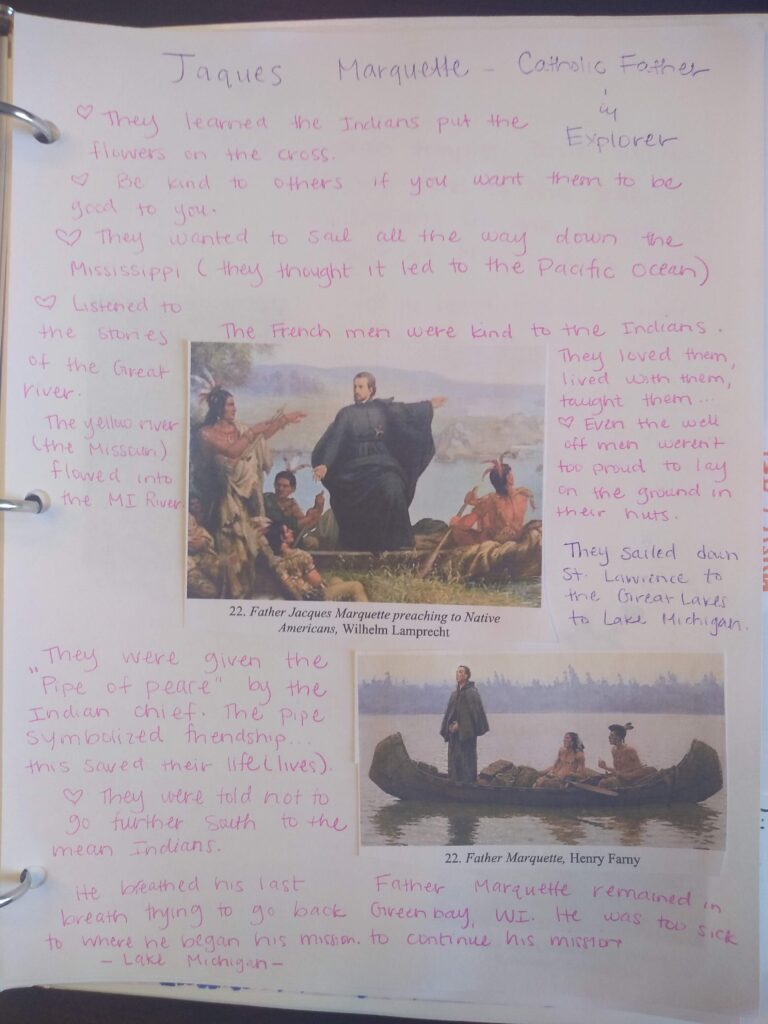 Jaques Marquette - Catholic Father
&
Explorer
♡ They learned the Indians put the
flowers on the cross.
♡ Be kind to others if you want them to be
good to you.
♡ They wanted to sail all the way down the
Mississippi (they thought it led to the Pacific Ocean)
♡ Listened to
the stories
of the Great
river.
The yellow river
(the Missouri)
flowed into
the MI River.
The French men were kind to the Indians.
They loved them,
lived with them,
taught them...
♡ Even the well
off men weren't
too proud to lay
on the ground in
their huts.
They sailed down
St. Lawrence to
the Great Lakes
to Lake Michigan.
22. Father Jacques Marquette preaching to Native
Americans, Wilhelm Lamprecht
They were given the
"Pipe of peace" by the
Indian chief. The pipe
symbolized friendship...
this saved their life (lives).
♡ They were told not to
go further South to the
mean Indians.
22. Father Marquette, Henry Farny
He breathed his last
breath trying to go back
to where he began his mission.
- Lake Michigan -
Father Marquette remained in
Green bay, WI. He was too sick
to continue his mission